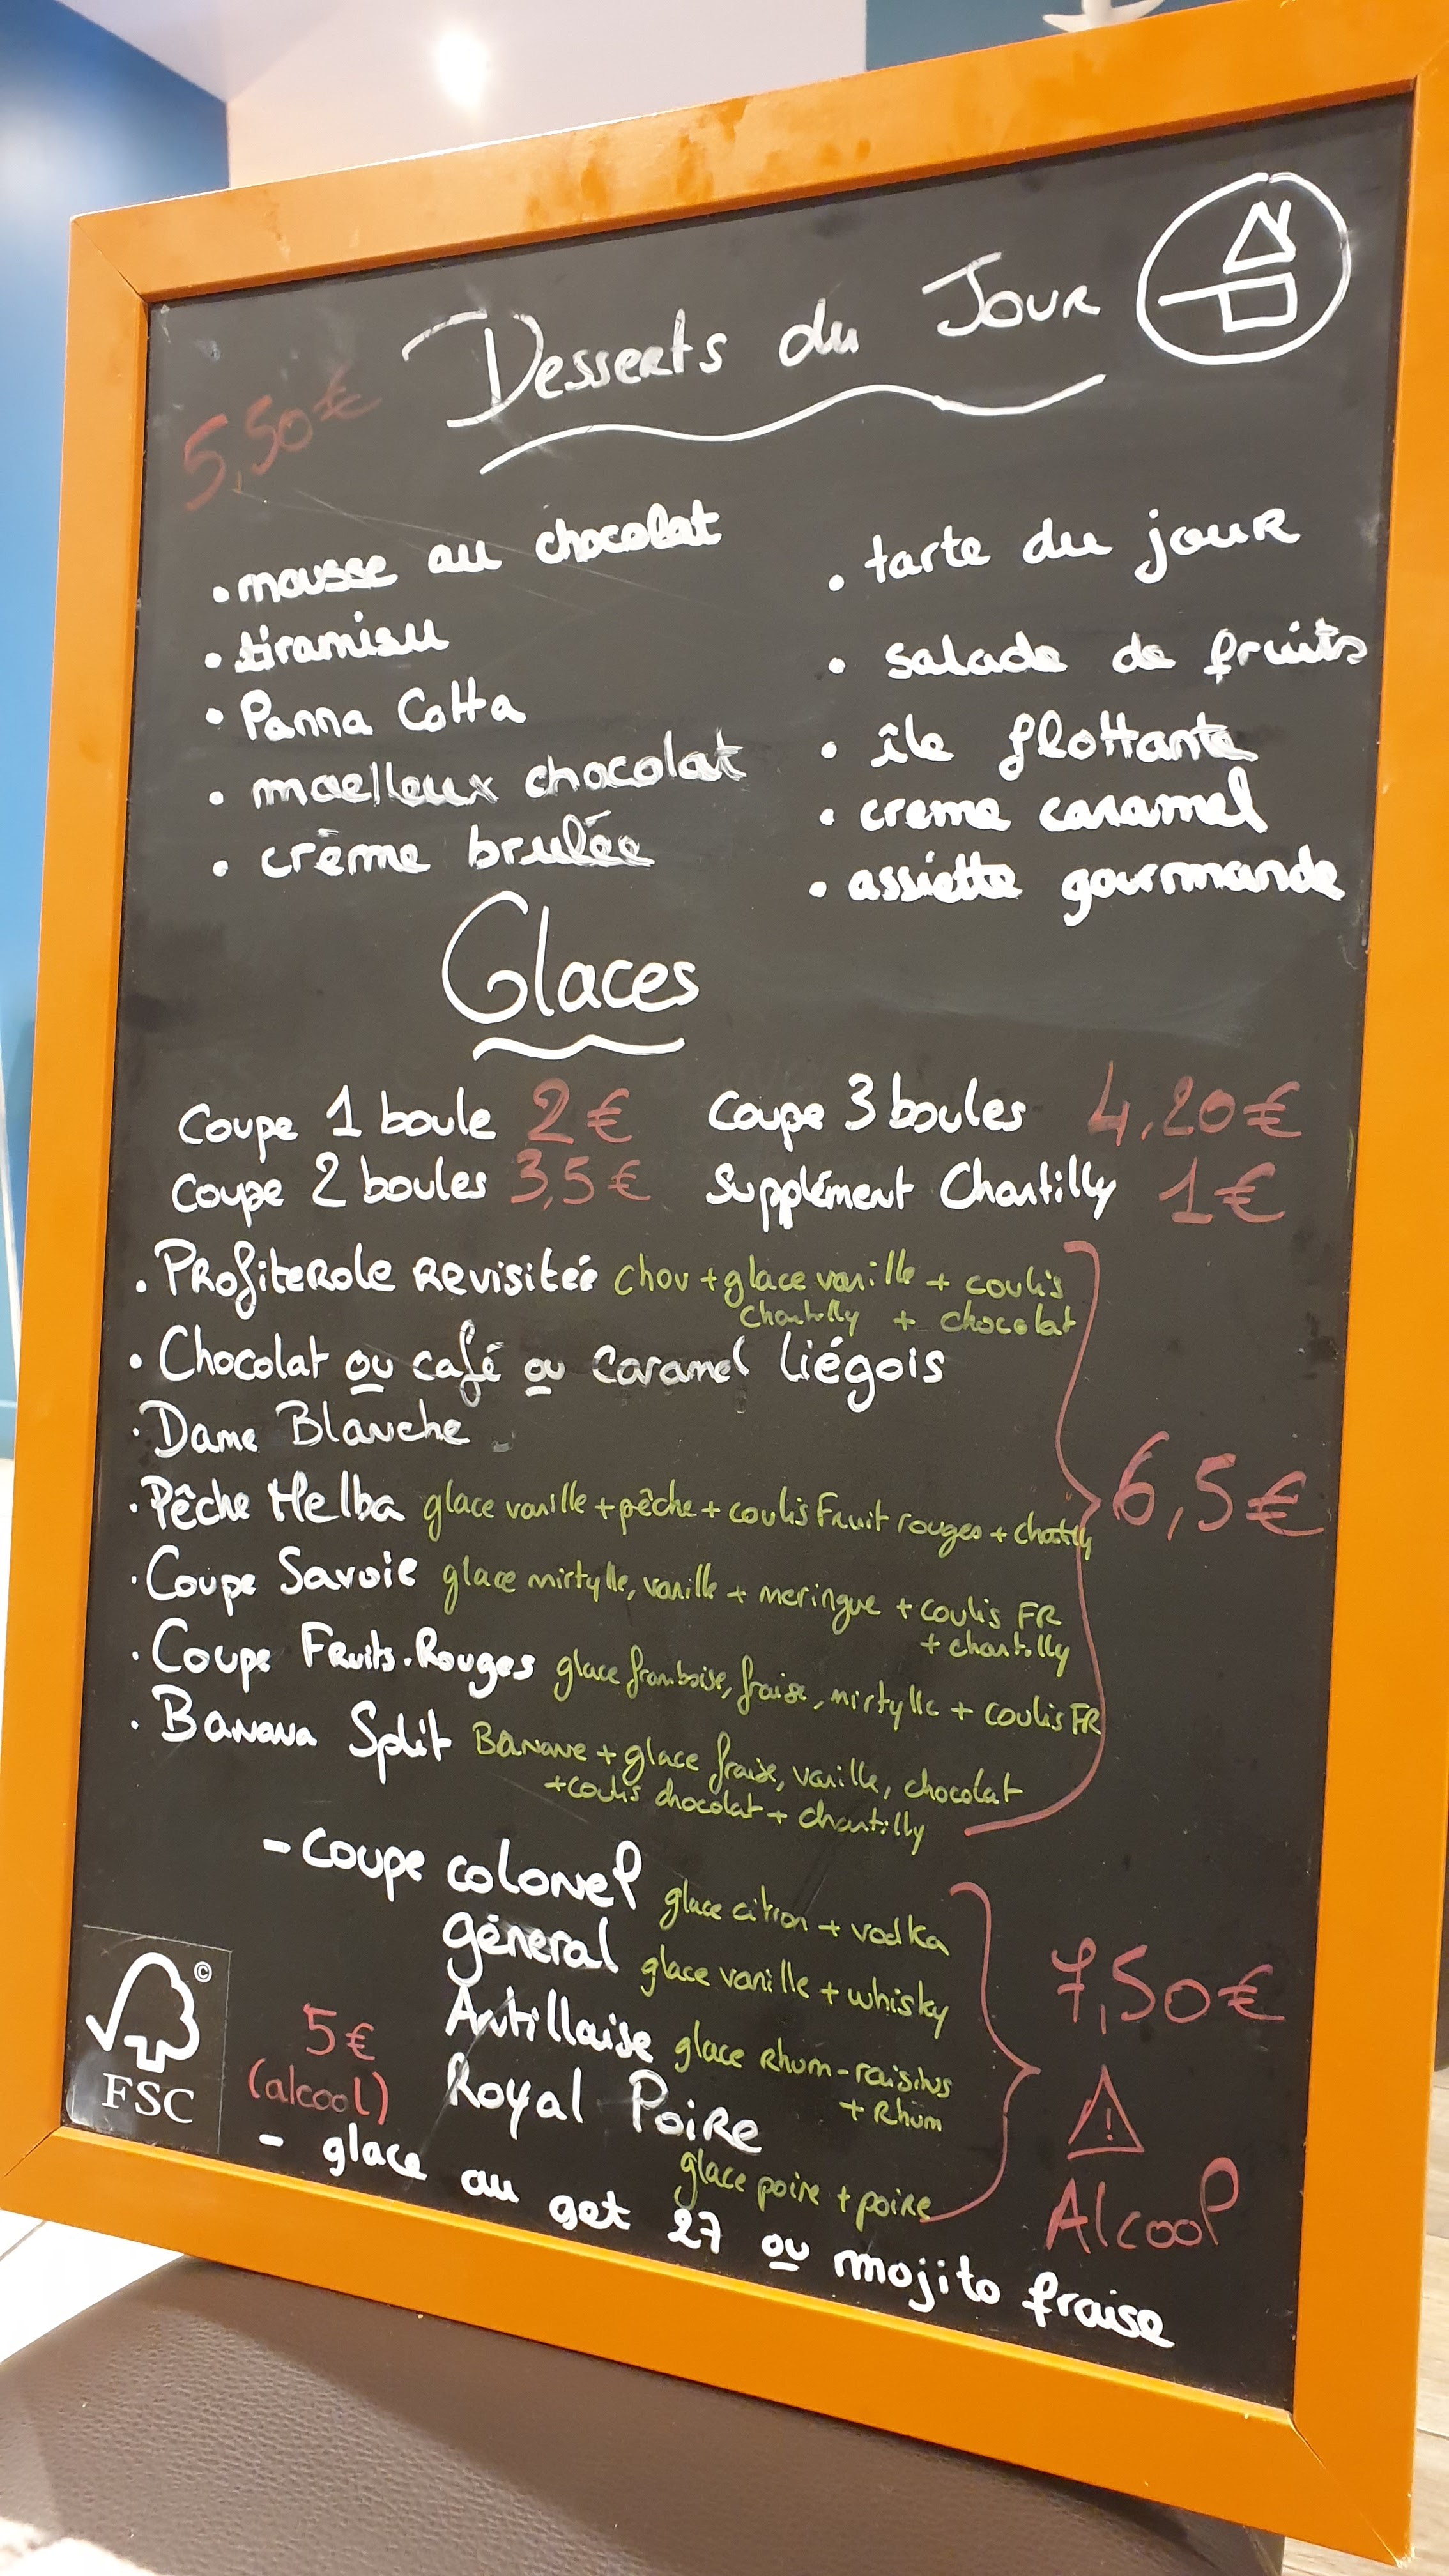 Desserts du Jour
5,50€
• mousse au chocolat
• tiramisu
• Panna Cotta
• moelleux chocolat
• crème brulée
• tarte du jour
• salade de fruits
• île flottante
• creme caramel
• assiette gourmande
Glaces
Coupe 1 boule 2€
Coupe 3 boules 4,20€
Coupe 2 boules 3,5€
Supplément Chantilly 1€
• Profiterole Revisiteé chou + glace vanille + coulis
chantilly + chocolat
• Chocolat ou café ou caramel liégois
• Dame Blanche
• Pêche Melba glace vanille + pêche + coulis Fruit rouges + chatilly
• Coupe Savoie glace mirtylle, vanille + meringue + coulis FR
+ chantilly
• Coupe Fruits.Rouges glace framboise, fraise, mirtylle + coulis FR
• Banana Split Banane + glace fraise, vanille, chocolat
+ coulis chocolat + chantilly
6,5€
- Coupe colonel glace citron + vodka
Géneral glace vanille + whisky
Antillaise glace Rhum-raisins
+ Rhum
Royal Poire
glace poire + poire
7,50€
! Alcool
5€
(alcool)
- glace au get 27 ou mojito fraise
©
FSC